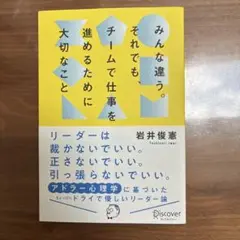 みんな違う。
それでも、
チームで仕事を
進めるために
大切なこと
岩井俊憲
Toshinori Iwai
リーダーは
裁かないでいい。
正さないでいい。
引っ張らないでいい。
アドラー心理学に基づいた
ドライで優しいリーダー論
Discover